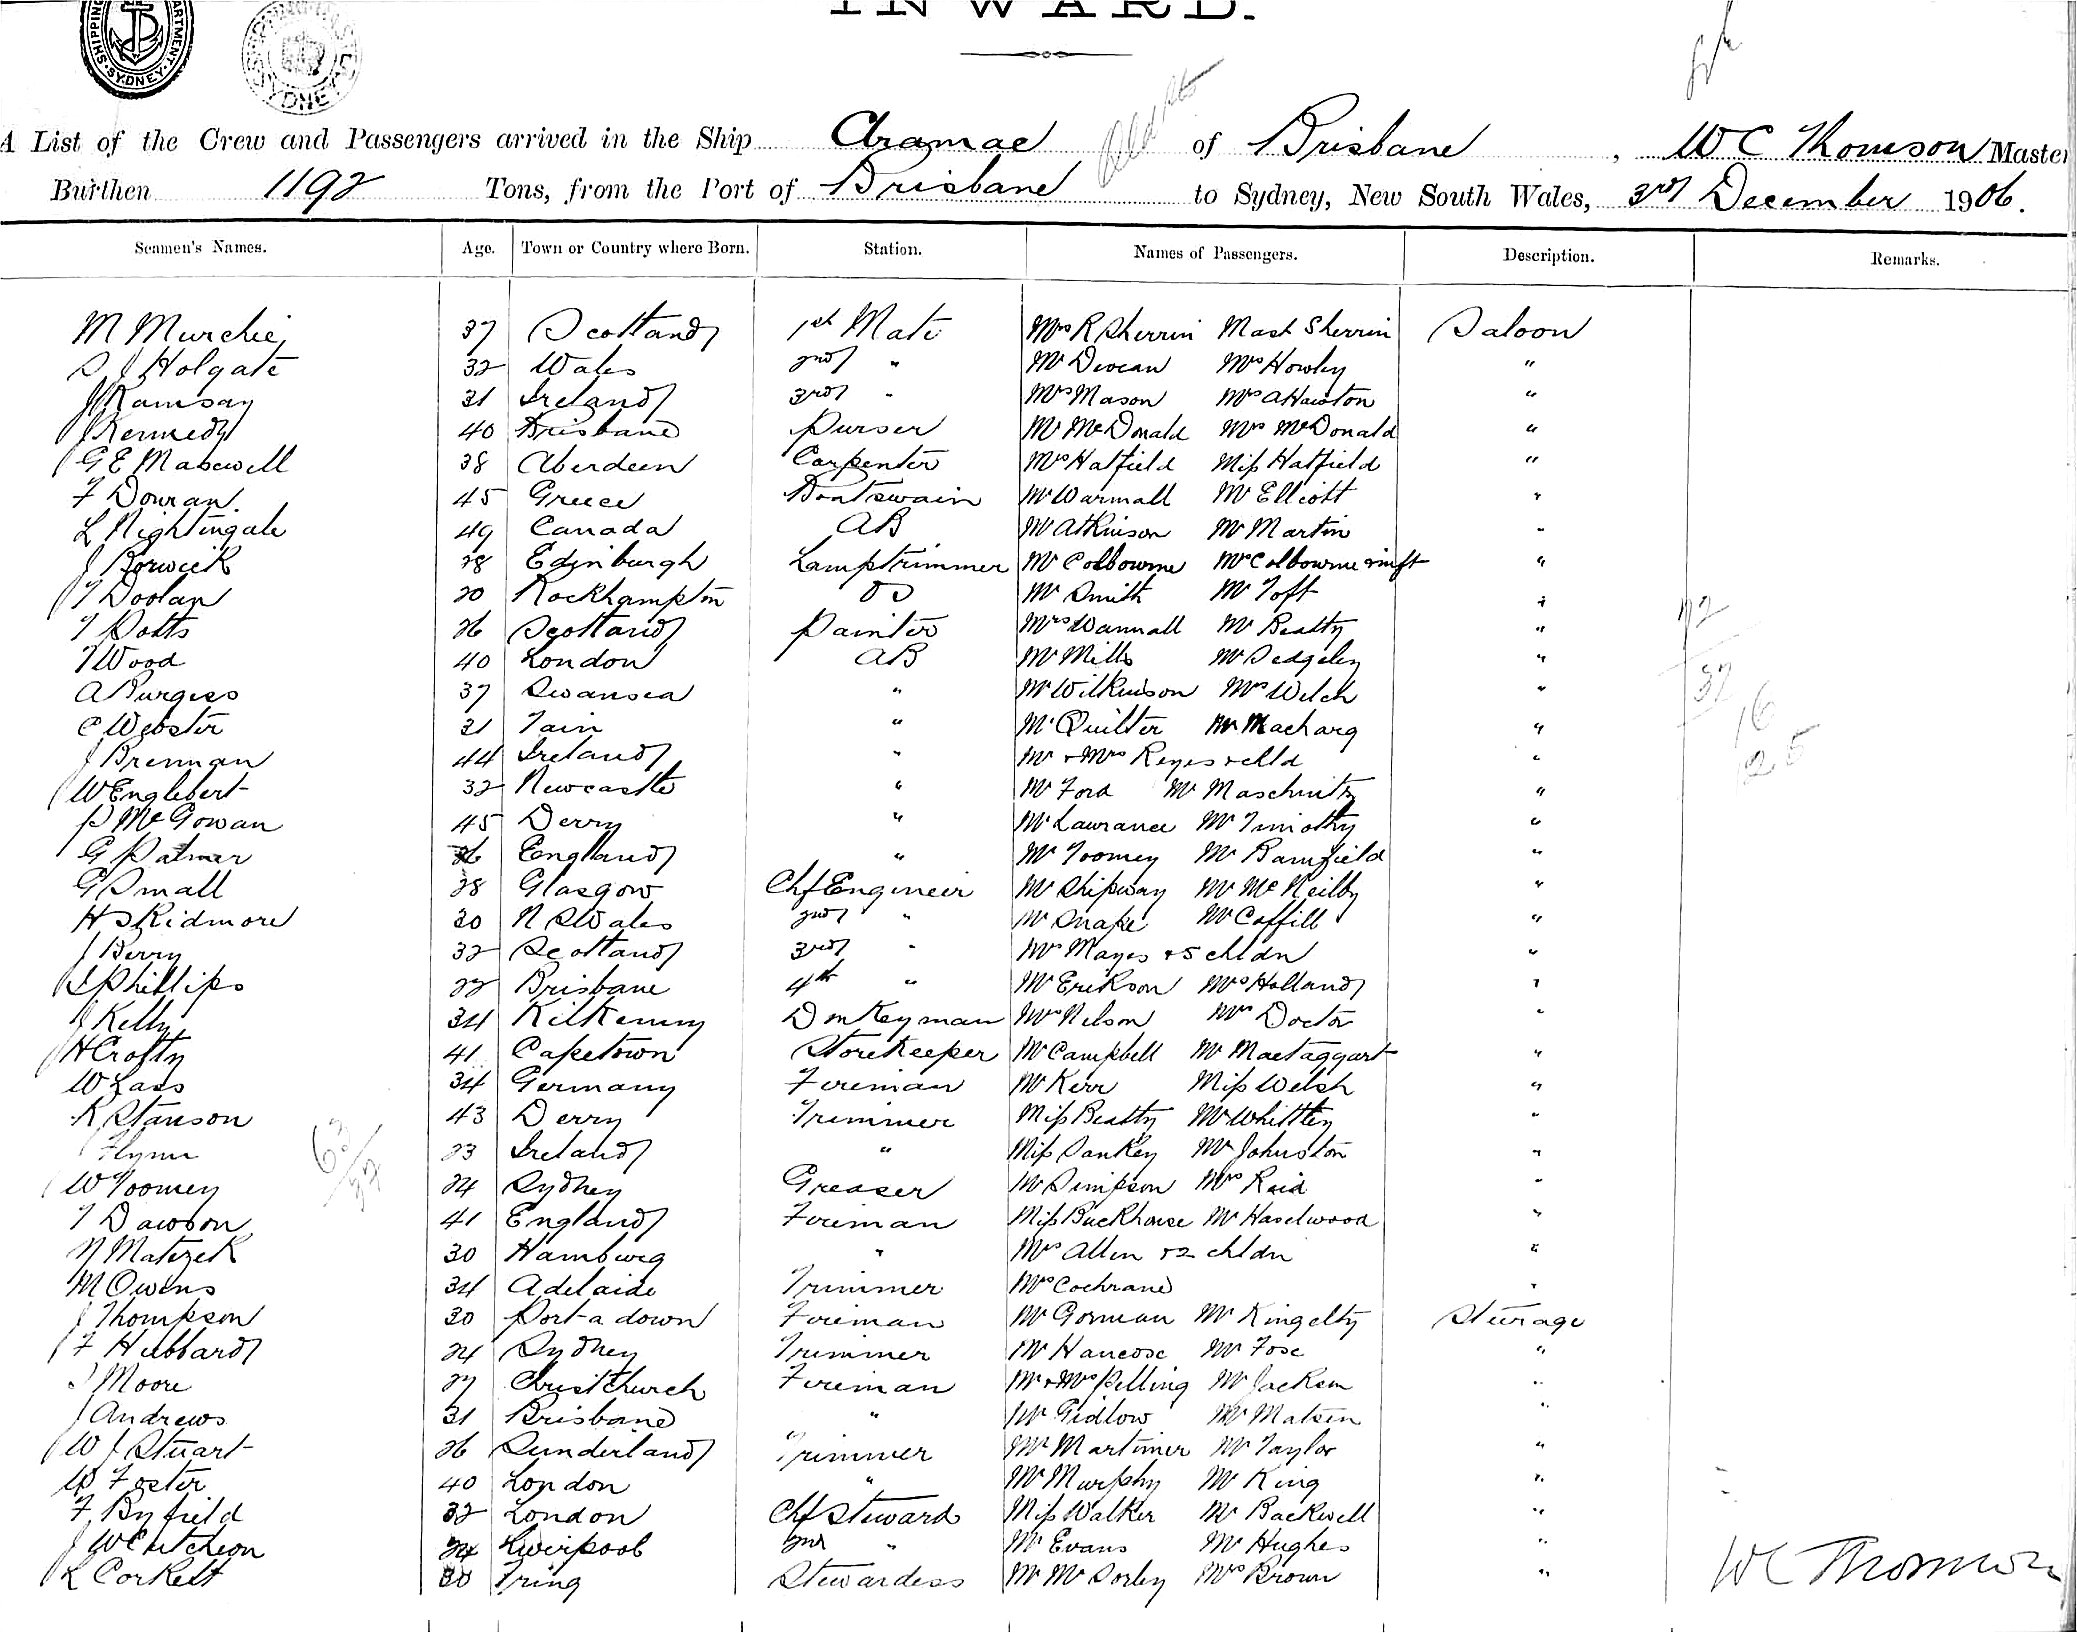 INWARD.
SHIPPING DEPARTMENT SYDNEY
SYDNEY
A List of the Crew and Passengers arrived in the Ship Aramac of Brisbane, W C Thomson Master
Burthen 1192 Tons, from the Port of Brisbane to Sydney, New South Wales, 3rd December 1906.
Seamen's Names. Age. Town or Country where Born. Station. Names of Passengers. Description. Remarks.
M Murchie 37 Scotland 1st Mate Mrs R Sherrin Mast Sherrin Saloon
S J Holgate 32 Wales 2nd " Mr Mrs Howley "
J Ramsay 31 Ireland 3rd " Mrs Mason Mrs A Hawton "
J Kennedy 40 Brisbane Purser Mr McDonald Mrs McDonald "
G E 38 Aberdeen Carpenter Mrs Hatfield Miss Hatfield "
F 45 Greece Boatswain Mr Warmall Mr Ellcott "
L Nightingale 49 Canada AB Mr Atkinson Mr Martin "
J Borwick 28 Edinburgh Lamptrimmer Mr Colbourne Mrs Colbourne "
T Doolan 20 Rockhampton OS Mr Smith Mr Toft "
T Potts 26 Scotland Painter Mrs Mr Beatty "
T Wood 40 London AB Mr Mills Mr Sedgeley "
A Burgess 37 Swansea " Mr Wilkinson Mrs Welch "
C Webster 21 Tain " Mr Quilter Mr Macharg "
J Brennan 44 Ireland " Mr & Mrs Keyes & chld "
W Englebert 32 Newcastle " Mr Ford Mr "
P McGowan 45 Derry " Mr Lawrance Mr Timothy "
G Palmer 26 England " Mr Toomey Mr Bamfield "
G Small 38 Glasgow Chf Engineer Mr Shipway Mr "
H Skidmore 30 N S Wales 2nd " Mr Snape Mr Coffill "
J Berry 32 Scotland 3rd " Mrs Mayes & 5 chldn "
S Phillips 22 Brisbane 4th " Mr Erikson Mrs Holland "
J Kelly 34 Kilkenny Donkeyman Mrs Nelson Mrs Doctor "
H Crofty 41 Capetown Storekeeper Mr Campbell Mr Mactaggart "
W Lass 34 Germany Fireman Mr Kerr Miss Welsh "
R Stanson 43 Derry Trimmer Miss Beatty Mr Whittley "
Flynn 23 Ireland " Miss Sankey Mr Johnston "
W Toomey 24 Sydney Greaser Mr Simpson Mrs Reid "
T Dawson 41 England Fireman Miss Buckhouse Mr Haselwood "
N Matezek 30 Hamburg " Mrs Allen & 2 chldn "
M Owens 34 Adelaide Trimmer Mrs Cochrane "
J Thompson 30 Port a down Fireman Mr Gorman Mr Steerage
F Hubbard 24 Sydney Trimmer Mr Hancose Mr Fose "
J Moore 27 Christchurch Fireman Mr & Mrs Pelling Mr Jackson "
J Andrews 31 Brisbane " Mr Gidlow Mr Matsen "
W J Stuart 26 Sunderland Trimmer Mr Martimer Mr Taylor "
W Foster 40 London " Mr Murphy Mr King "
F Byfield 32 London Chf Steward Miss Walker Mr Backwell "
J 24 Liverpool 2nd " Mr Evans Mr Hughes "
L Corkett 30 Tring Stewardess Mr McSorley Mrs Brown "
16
25
W C Thomson